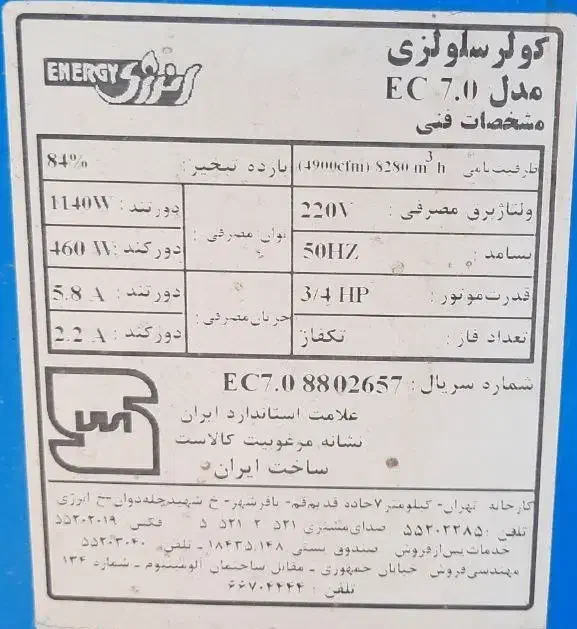 کولر سلولزی
ENERGY انرژی
مدل EC 7.0
مشخصات فنی
ظرفیت نامی (4900cfm) 8280 m³ h
بازده تبخیر: 84%
ولتاژ برق مصرفی: 220V
توان مصرفی: دور تند: 1140W
بسامد: 50HZ
دور کند: 460 W
قدرت موتور: 3/4 HP
جریان مصرفی: دور تند: 5.8 A
تعداد فاز: تکفاز
دور کند: 2.2 A
شماره سریال: EC7.0 8802657
علامت استاندارد ایران
نشانه مرغوبیت کالاست
ساخت ایران
کارخانه تهران- کیلومتر ۷ جاده قدیم قم- باقرشهر- خ شهید رجله دوان- خ انرژی
تلفن: ۵۵۲۰۲۲۸۵ صدای مشتری ۵۲۱ ۲ ۵۲۱ ۵ فکس ۵۵۲۰۲۰۱۹
خدمات پس از فروش صندوق پستی ۱۸۴۳۵،۱۴۸ - تلفن ۵۵۲۰۳۰۴۰
مهندسی فروش خیابان جمهوری - مقابل ساختمان آلومینیوم - شماره ۱۳۴
تلفن: ۶۶۷۰۴۴۴۴